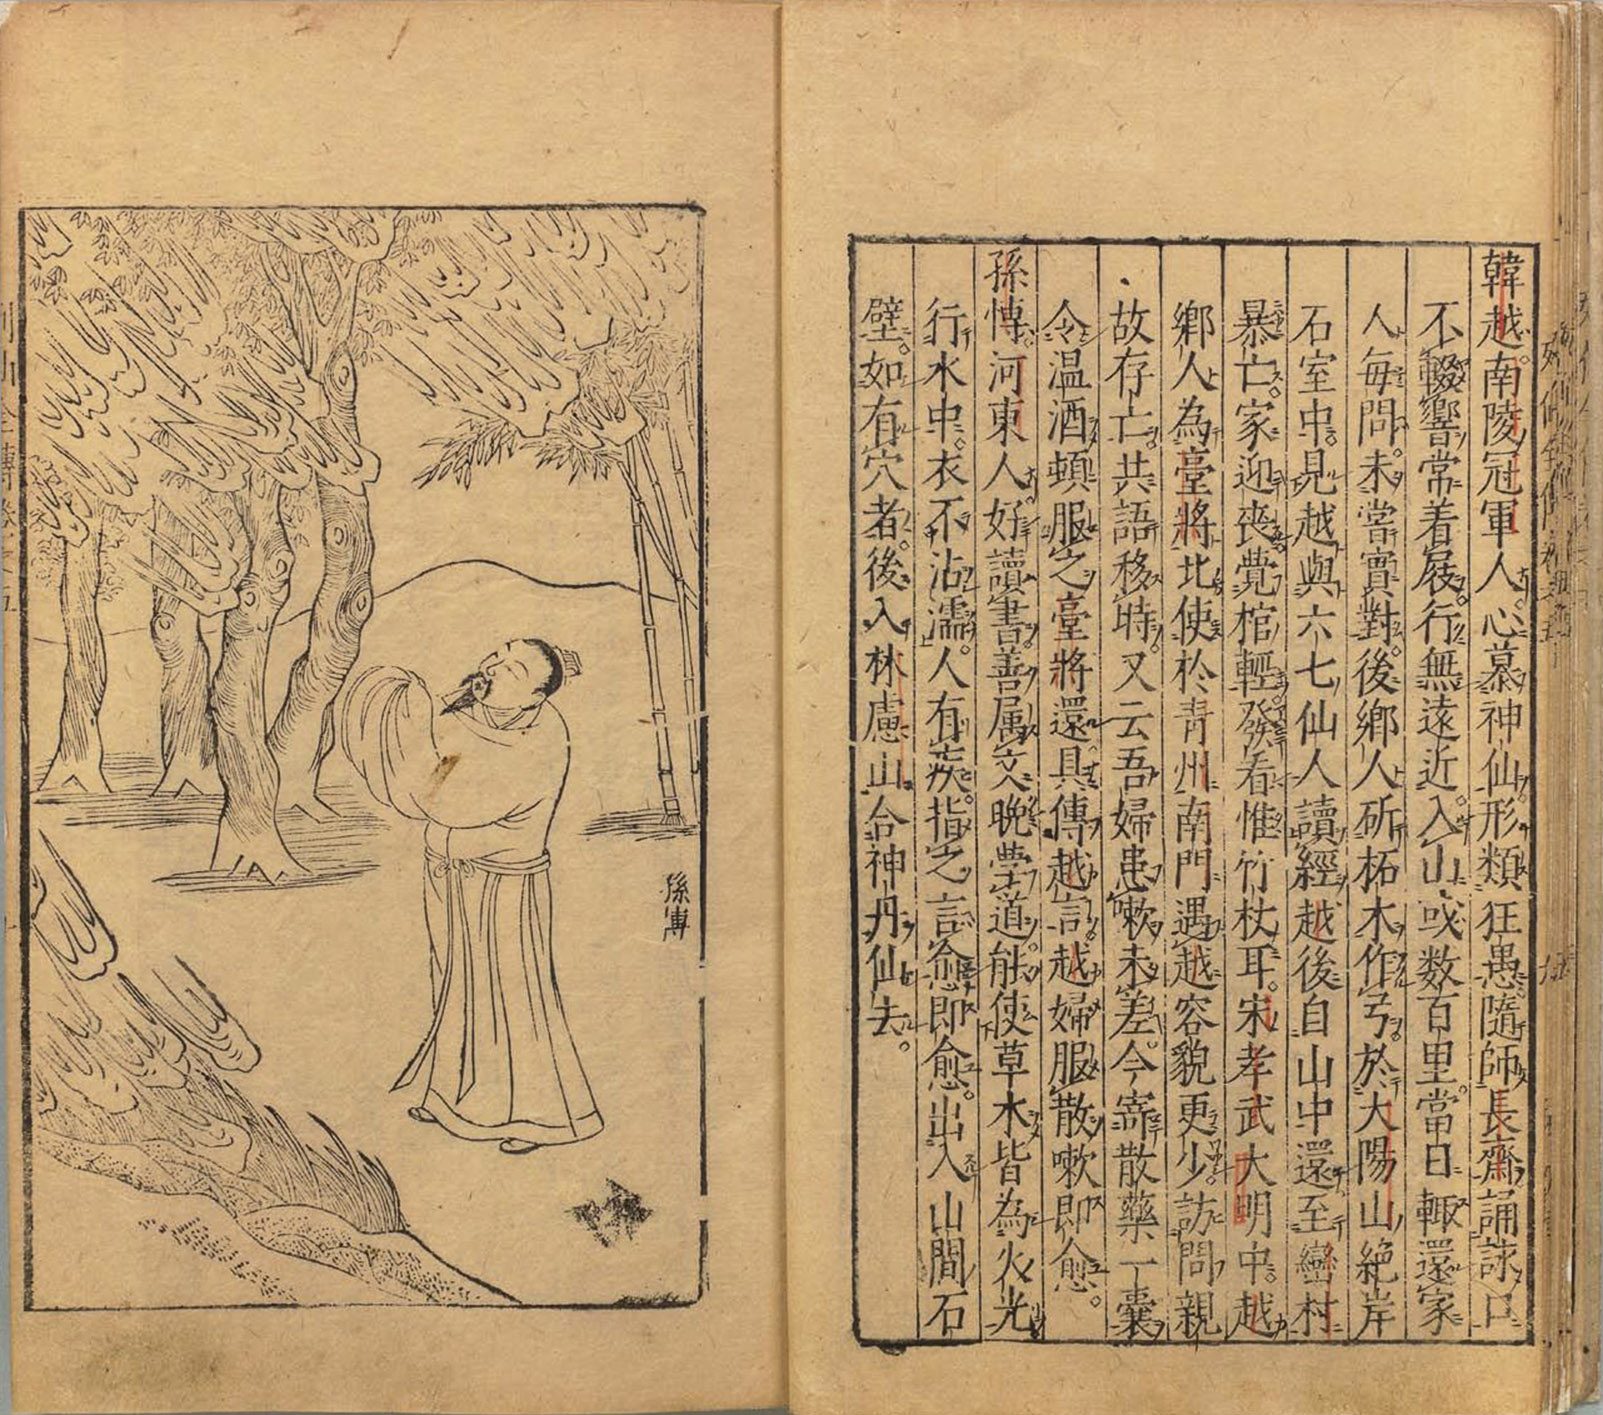 韓越。南陵冠軍人。心慕神仙。形類狂愚。隨師長齋誦詠口
不輟響。常着屐。行無遠近。入山或数百里。當日輙還家
人毎問。未甞實對。後鄉人斫柘木作弓。於大陽山絶岸
石室中。見越與六七仙人讀經。越後自山中還至巒村
暴亡。家迎丧。覺棺輕。發看惟竹杖耳。宋孝武大明中。越
鄉人為臺將。北使於青州南門。遇越容貌更少。訪問親
故存亡。共語移時。又云吾婦患嗽未差。今寄散藥一囊
令温酒頓服之。臺將還。具傳越言。越婦服散嗽即愈。
孫愽。河東人。好讀書。善属文。晚學道。能使草木皆為火光
行水中。衣不沾濡。人有疾。指之言愈即愈。出入山間石
壁。如有穴者。後入林慮山合神丹仙去。
孫專